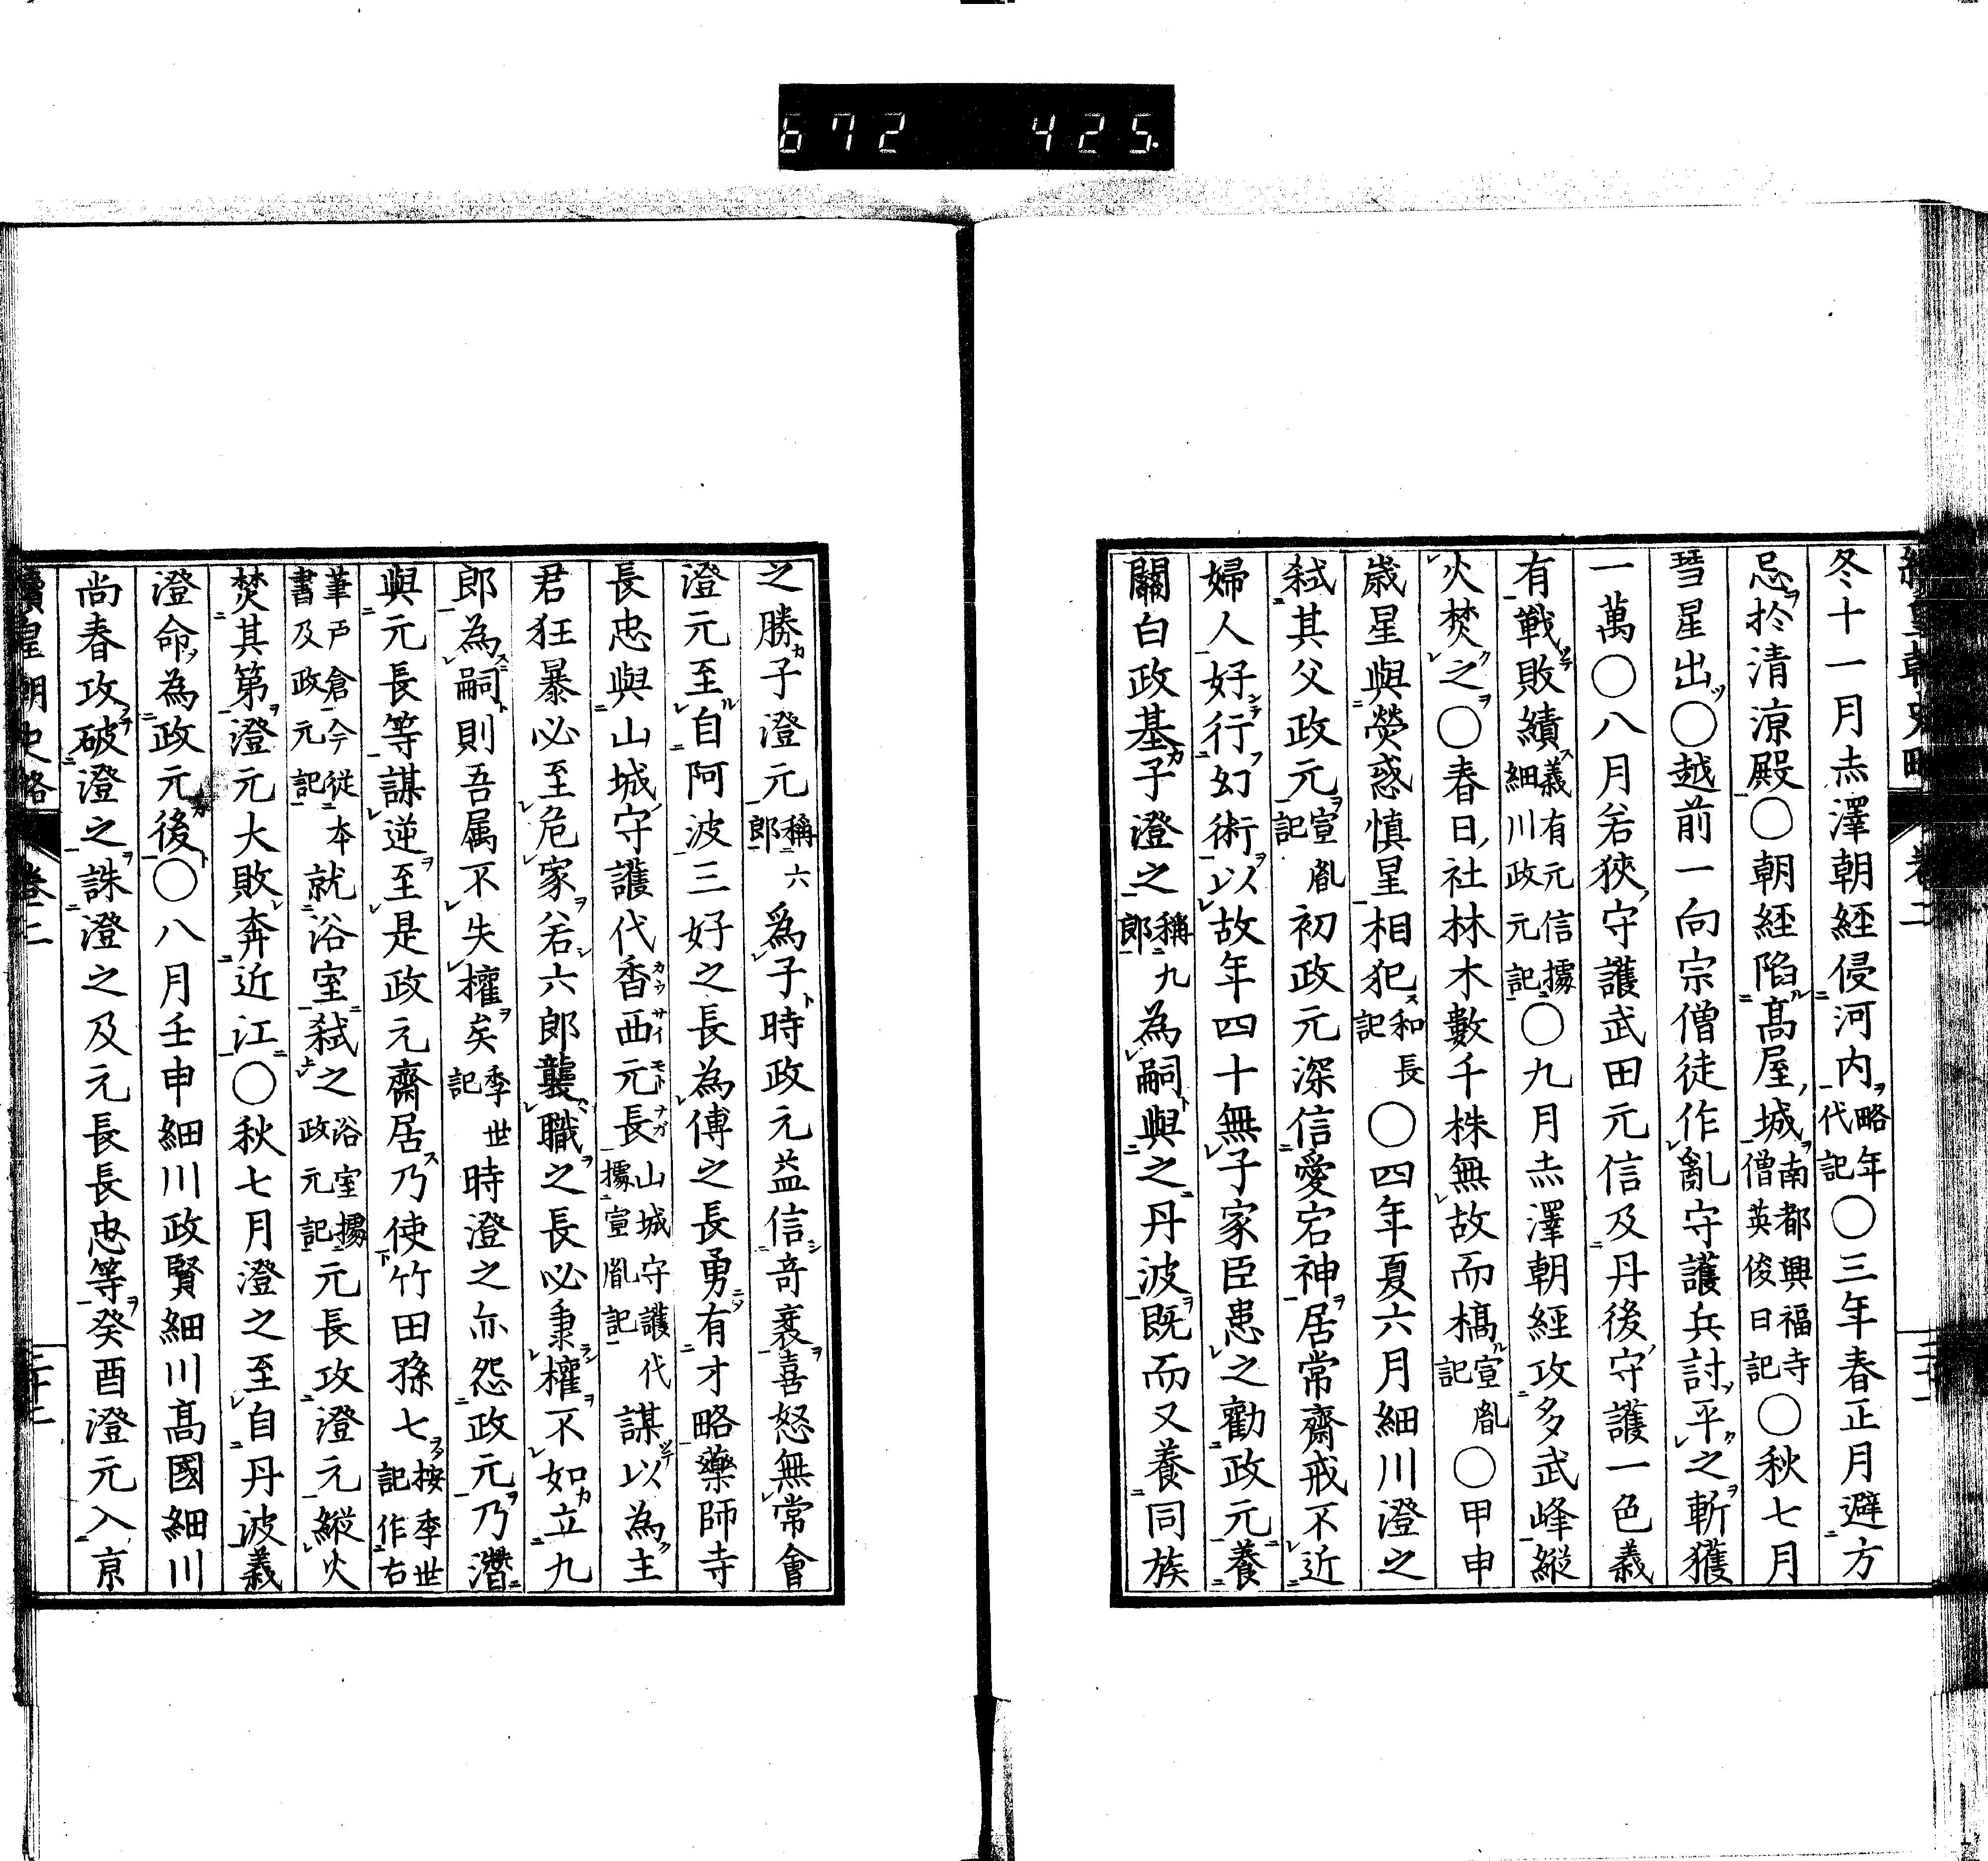 672 425.
續皇朝史略 卷二
冬十一月赤澤朝經侵河内略年代記〇三年春正月避方
忌於清涼殿〇朝経陷髙屋城南都興福寺僧英俊日記〇秋七月
彗星出〇越前一向宗僧徒作亂守護兵討平之斬獲
一萬〇八月若狹守護武田元信及丹後守護一色義
有戰敗績義有元信據細川政元記〇九月赤澤朝經攻多武峰縱
火焚之〇春日社林木數千株無故而槁宣胤記〇甲申
歳星與熒惑慎星相犯和長記〇四年夏六月細川澄之
弑其父政元宣胤記初政元深信愛宕神居常齋戒不近
婦人好行幻術以故年四十無子家臣患之勸政元養
關白政基子澄之稱九郎為嗣與之丹波既而又養同族
之勝子澄元稱六郎爲子時政元益信竒衺喜怒無常會
澄元至自阿波三好之長為傅之長勇有才略藥師寺
長忠與山城守護代香西元長山城守護代據宣胤記謀以為主
君狂暴必至危家若六郎襲職之長必秉權不如立九
郎為嗣則吾属不失權矣季世記時澄之亦怨政元乃潛
與元長等謀逆至是政元齋居乃使竹田孫七按季世記作右
筆戸倉今從本書及政元記就浴室弑之浴室據政元記元長攻澄元縱火
焚其第澄元大敗奔近江〇秋七月澄之至自丹波義
澄命為政元後〇八月壬申細川政賢細川髙國細川
尚春攻破澄之誅澄之及元長長忠等癸酉澄元入京
續皇朝史略 卷二